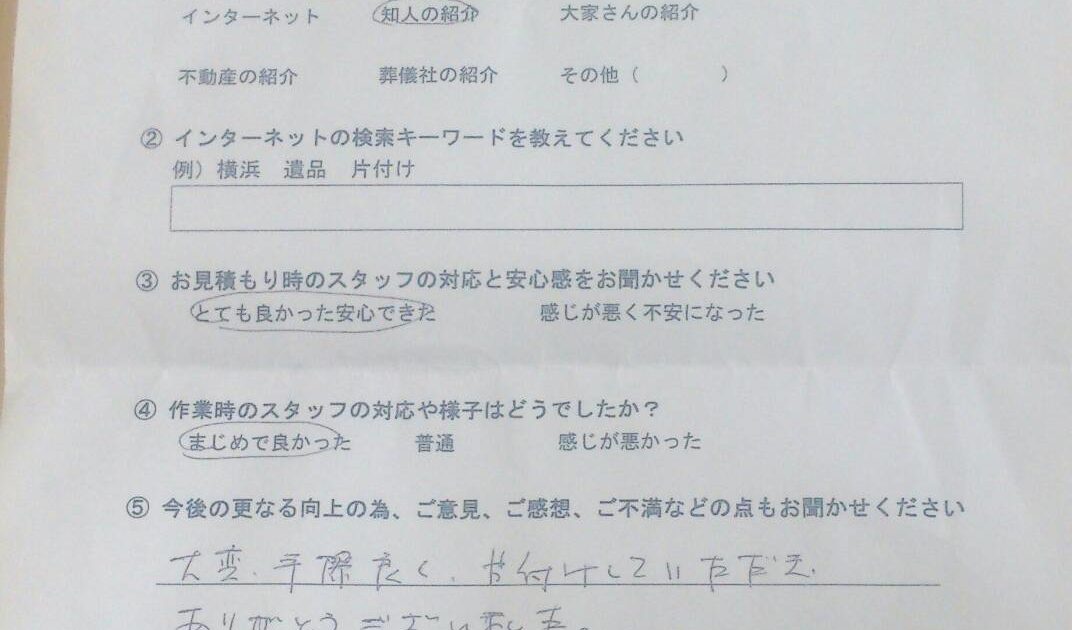 インターネット 知人の紹介 大家さんの紹介
不動産の紹介 葬儀社の紹介 その他（ ）
② インターネットの検索キーワードを教えてください
例）横浜 遺品 片付け
③ お見積もり時のスタッフの対応と安心感をお聞かせください
とても良かった安心できた 感じが悪く不安になった
④ 作業時のスタッフの対応や様子はどうでしたか？
まじめで良かった 普通 感じが悪かった
⑤ 今後の更なる向上の為、ご意見、ご感想、ご不満などの点もお聞かせください
大変、手際良く、片付けしていただき、
ありがとうございました。